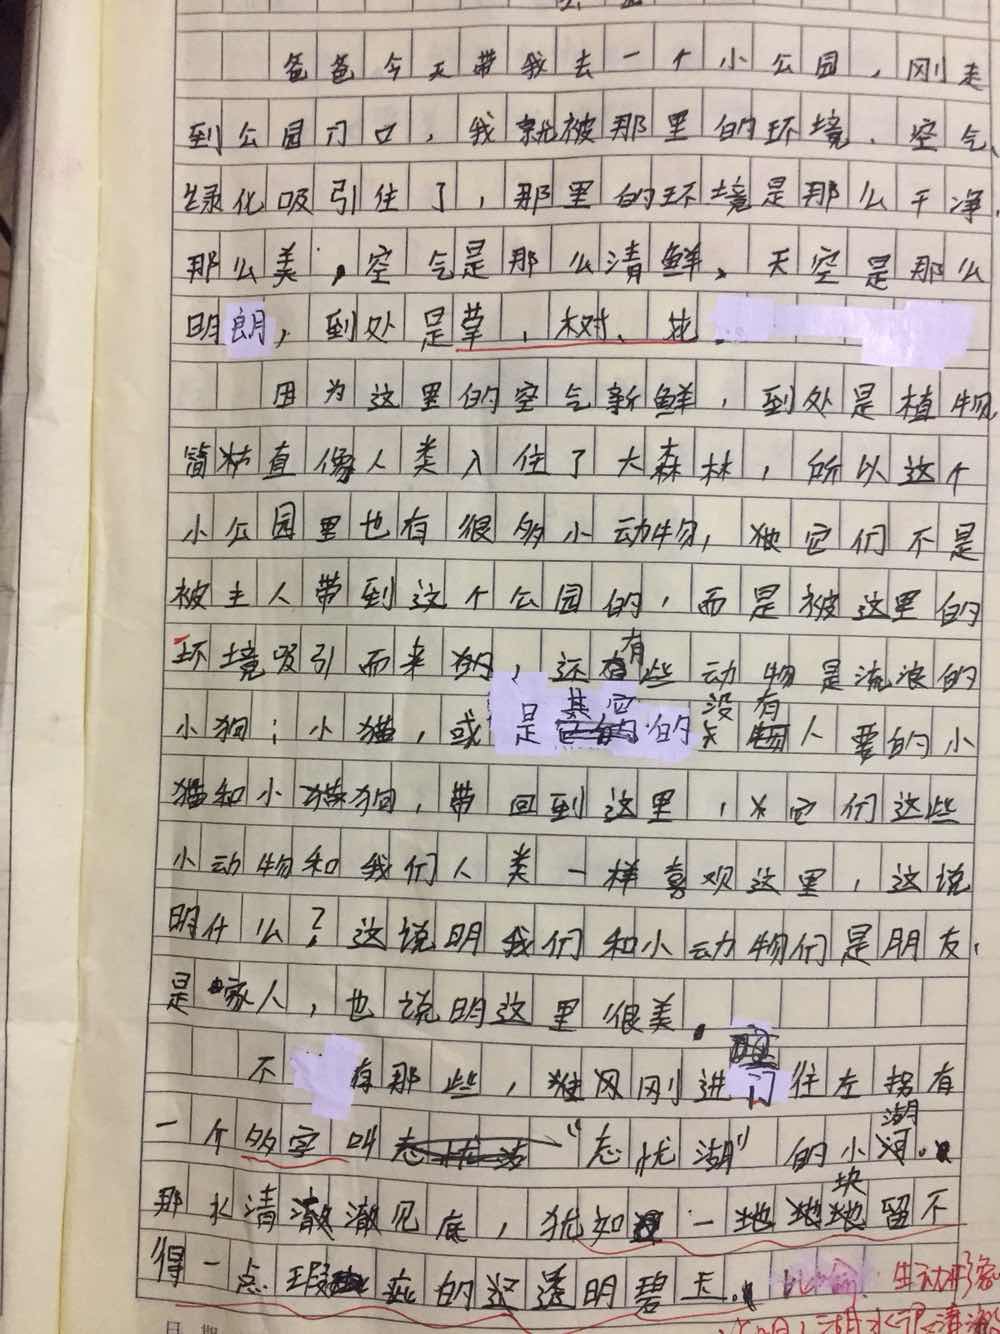 爸爸今天带我去一个小公园，刚走
到公园门口，我就被那里的环境、空气、
绿化吸引住了，那里的环境是那么干净，
那么美，空气是那么清鲜，天空是那么
明朗，到处是草，树、花。
因为这里的空气新鲜，到处是植物
简直像人类入住了大森林，所以这个
小公园里也有很多小动物，它们不是
被主人带到这个公园的，而是被这里的
环境吸引而来的，还有些动物是流浪的
小狗；小猫，或是其它的没有人要的小
猫和小狗，带回到这里，它们这些
小动物和我们人类一样喜欢这里，这说
明什么？这说明我们和小动物们是朋友，
是家人，也说明这里很美。
不有那些，刚进门往左拐有
一个名字叫“忘忧湖”的小湖。
那水清澈见底，犹如一块留不
得一点瑕疵的透明碧玉。
比喻 生动形象
日期